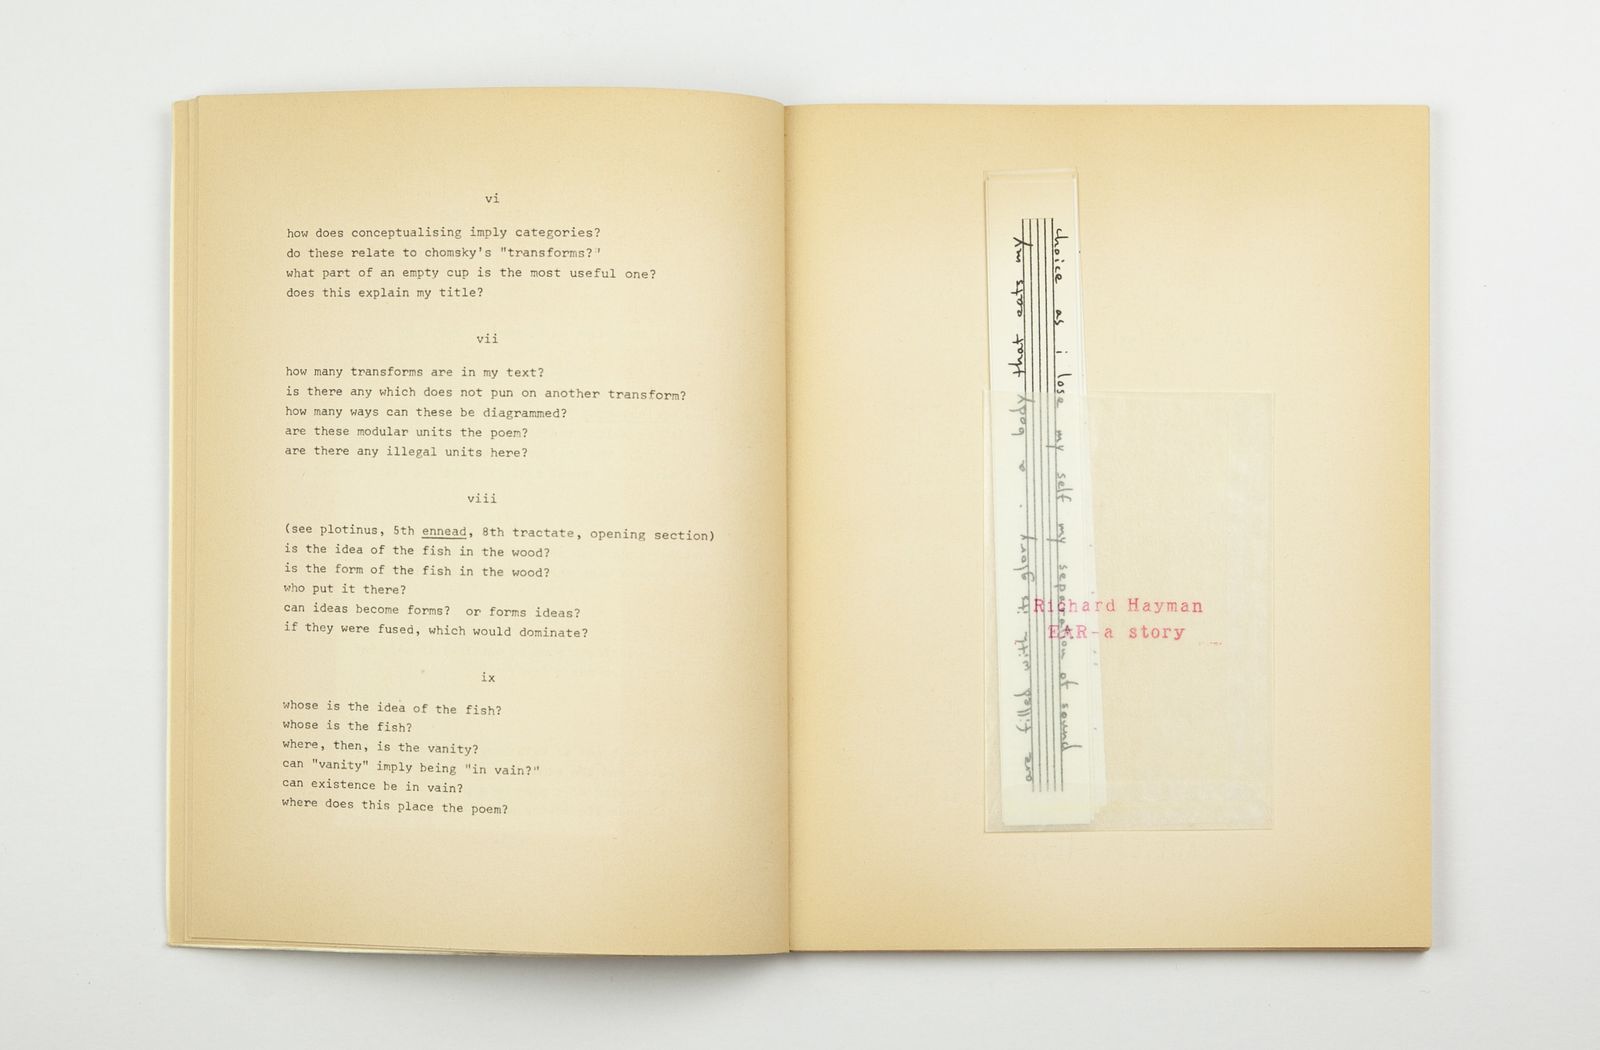 vi
how does conceptualising imply categories?
do these relate to chomsky's "transforms?"
what part of an empty cup is the most useful one?
does this explain my title?
vii
how many transforms are in my text?
is there any which does not pun on another transform?
how many ways can these be diagrammed?
are these modular units the poem?
are there any illegal units here?
viii
(see plotinus, 5th ennead, 8th tractate, opening section)
is the idea of the fish in the wood?
is the form of the fish in the wood?
who put it there?
can ideas become forms?  or forms ideas?
if they were fused, which would dominate?
ix
whose is the idea of the fish?
whose is the fish?
where, then, is the vanity?
can "vanity" imply being "in vain?"
can existence be in vain?
where does this place the poem?
choice as i lose my self my separation of sound
are filled with its glory . a body that eats my
Richard Hayman
EAR-a story